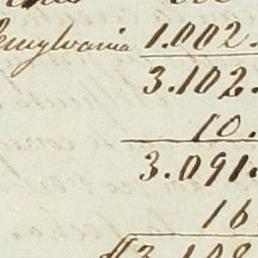 ennsylvania 1.002.
3.102.
10.
3.091.
16
$3.108